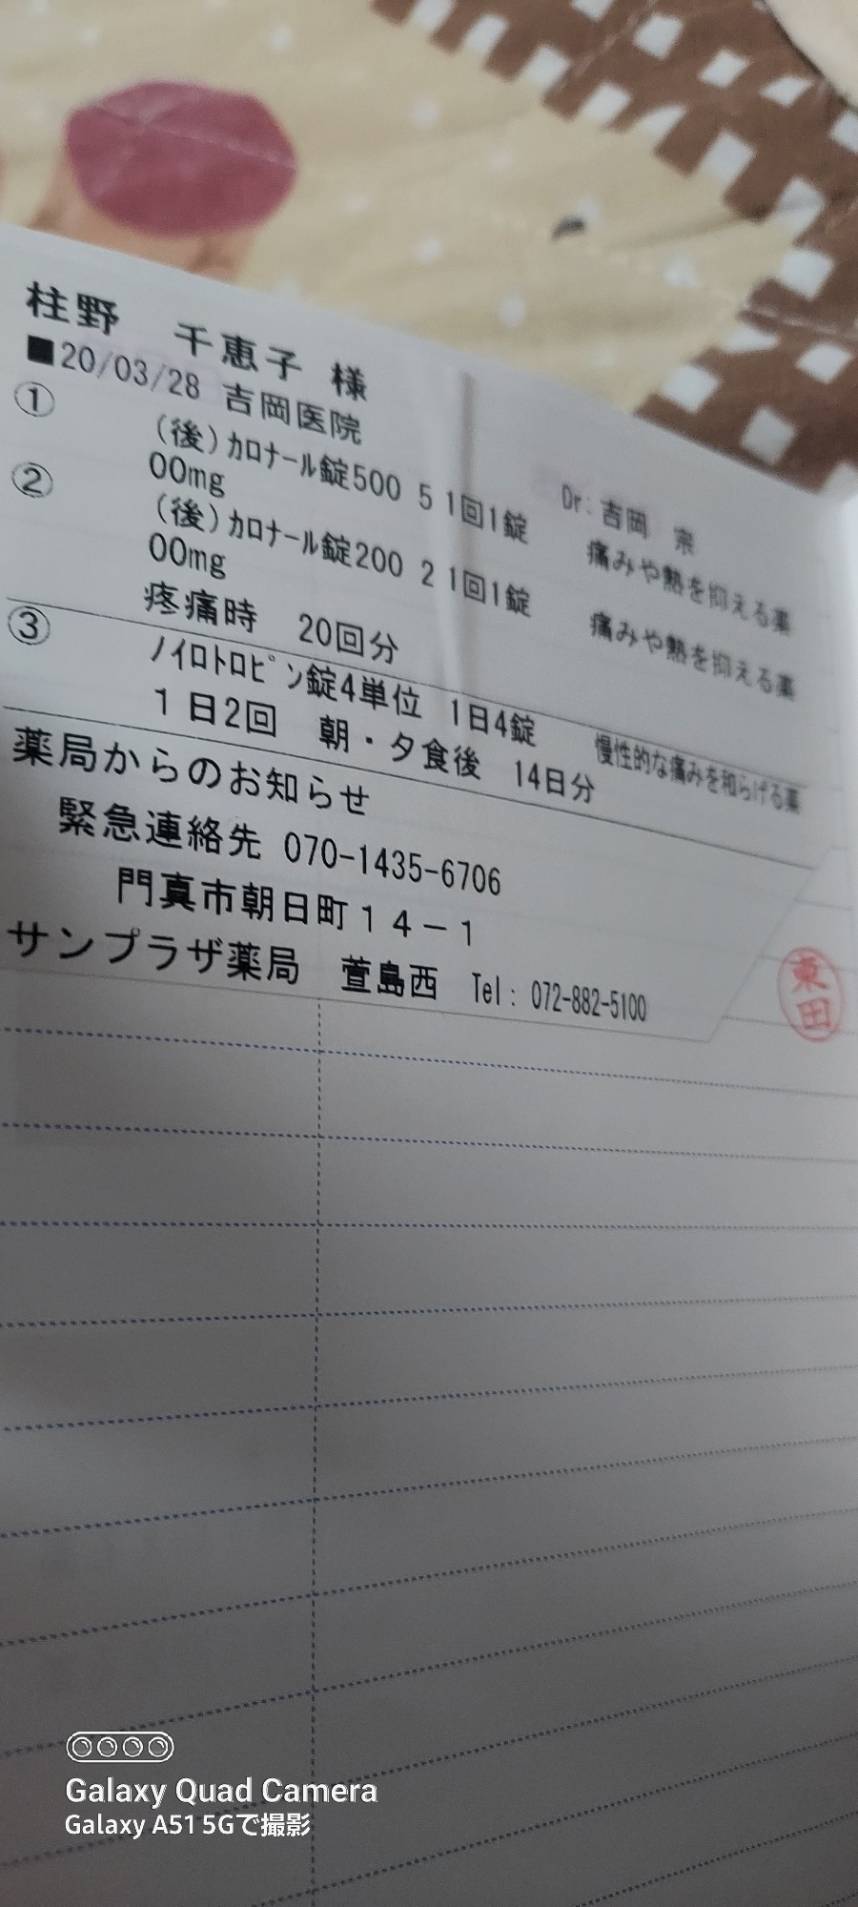 柱野　千恵子 様
■20/03/28 吉岡医院　Dr: 吉岡　宗
① (後)カロナール錠500 5 1回1錠　痛みや熱を抑える薬
00mg
② (後)カロナール錠200 2 1回1錠　痛みや熱を抑える薬
00mg
疼痛時　20回分
③ ノイロトロピン錠4単位 1日4錠　慢性的な痛みを和らげる薬
1日2回　朝・夕食後　14日分
薬局からのお知らせ
緊急連絡先 070-1435-6706
門真市朝日町14-1
サンプラザ薬局　萱島西　Tel: 072-882-5100
東田
Galaxy Quad Camera
Galaxy A51 5Gで撮影